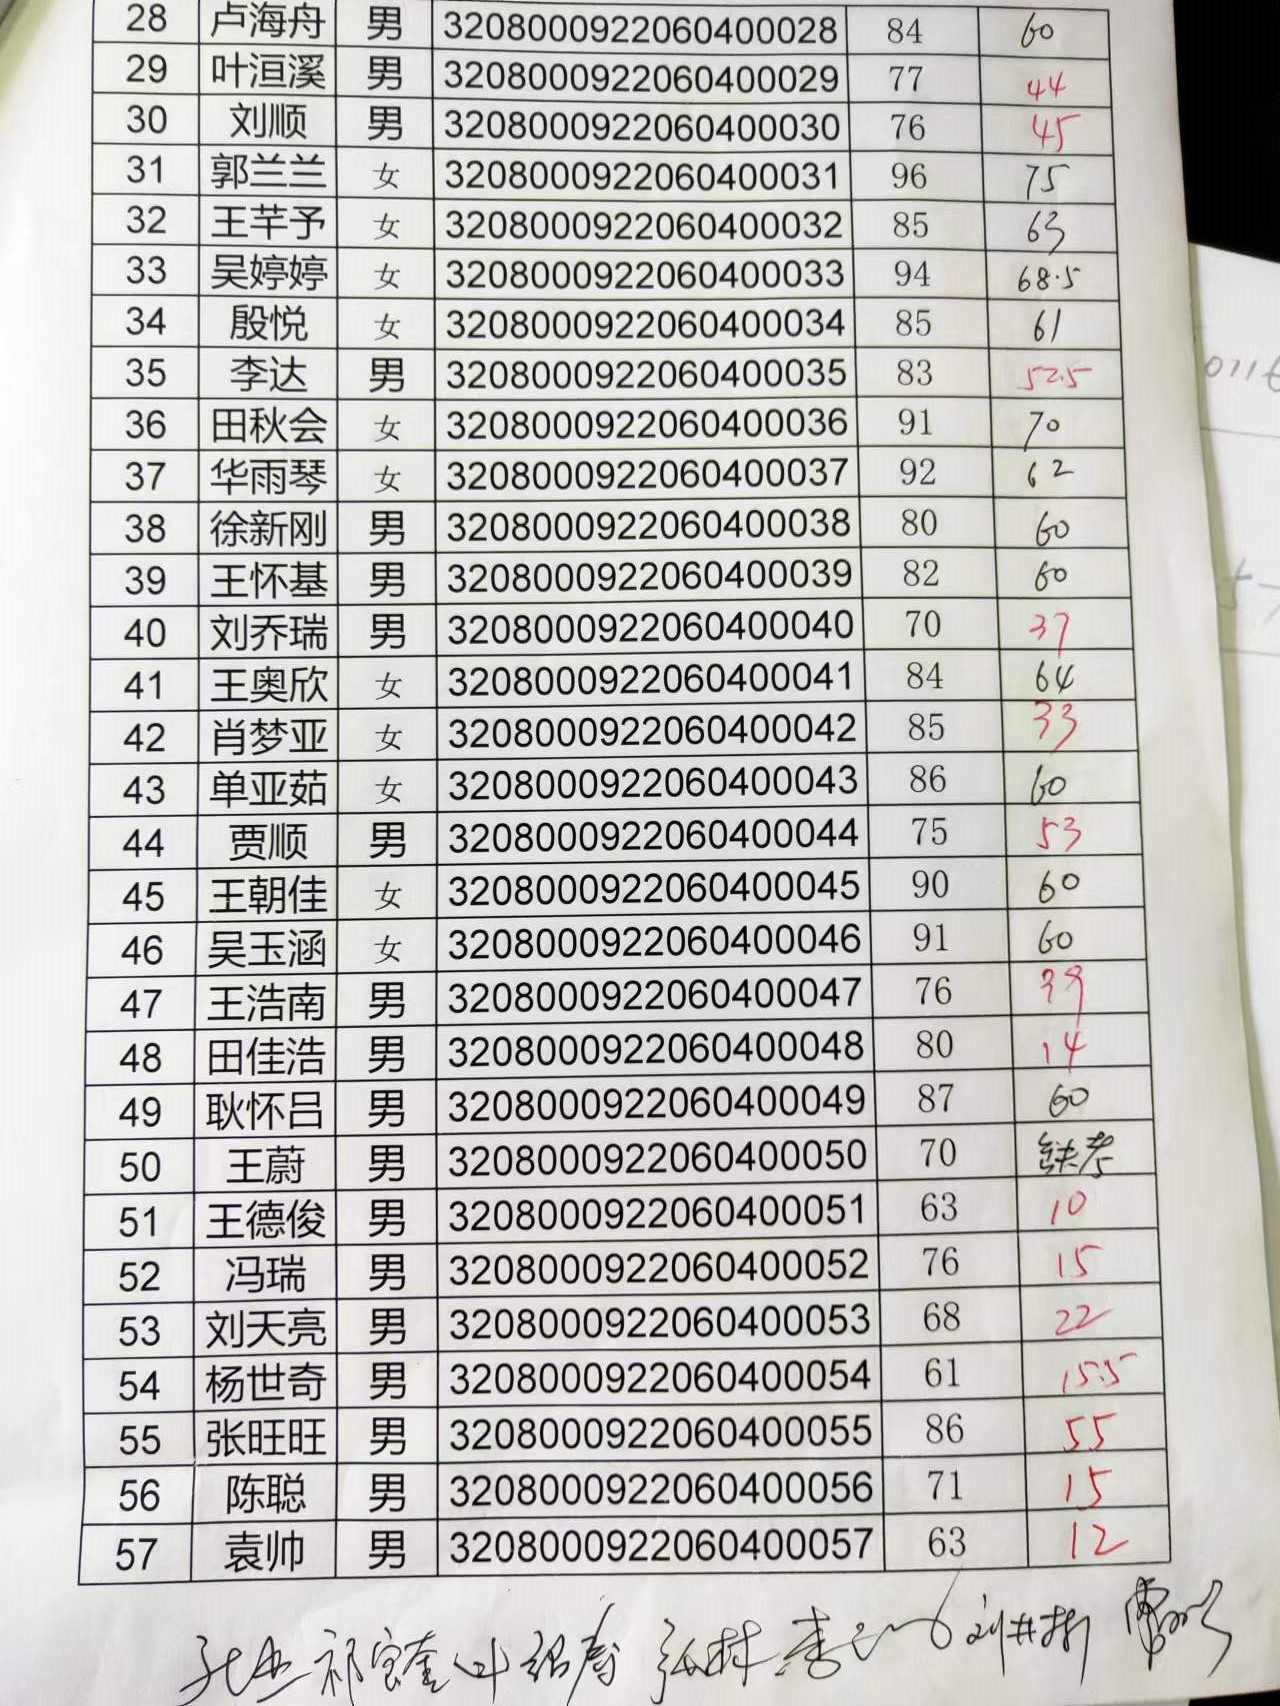 28 卢海舟 男 3208000922060400028 84 60
29 叶洹溪 男 3208000922060400029 77 44
30 刘顺 男 3208000922060400030 76 45
31 郭兰兰 女 3208000922060400031 96 75
32 王芊予 女 3208000922060400032 85 63
33 吴婷婷 女 3208000922060400033 94 68.5
34 殷悦 女 3208000922060400034 85 61
35 李达 男 3208000922060400035 83 52.5
36 田秋会 女 3208000922060400036 91 70
37 华雨琴 女 3208000922060400037 92 62
38 徐新刚 男 3208000922060400038 80 60
39 王怀基 男 3208000922060400039 82 60
40 刘乔瑞 男 3208000922060400040 70 37
41 王奥欣 女 3208000922060400041 84 64
42 肖梦亚 女 3208000922060400042 85 33
43 单亚茹 女 3208000922060400043 86 60
44 贾顺 男 3208000922060400044 75 53
45 王朝佳 女 3208000922060400045 90 60
46 吴玉涵 女 3208000922060400046 91 60
47 王浩南 男 3208000922060400047 76 39
48 田佳浩 男 3208000922060400048 80 14
49 耿怀吕 男 3208000922060400049 87 60
50 王蔚 男 3208000922060400050 70 缺考
51 王德俊 男 3208000922060400051 63 10
52 冯瑞 男 3208000922060400052 76 15
53 刘天亮 男 3208000922060400053 68 22
54 杨世奇 男 3208000922060400054 61 15.5
55 张旺旺 男 3208000922060400055 86 55
56 陈聪 男 3208000922060400056 71 15
57 袁帅 男 3208000922060400057 63 12